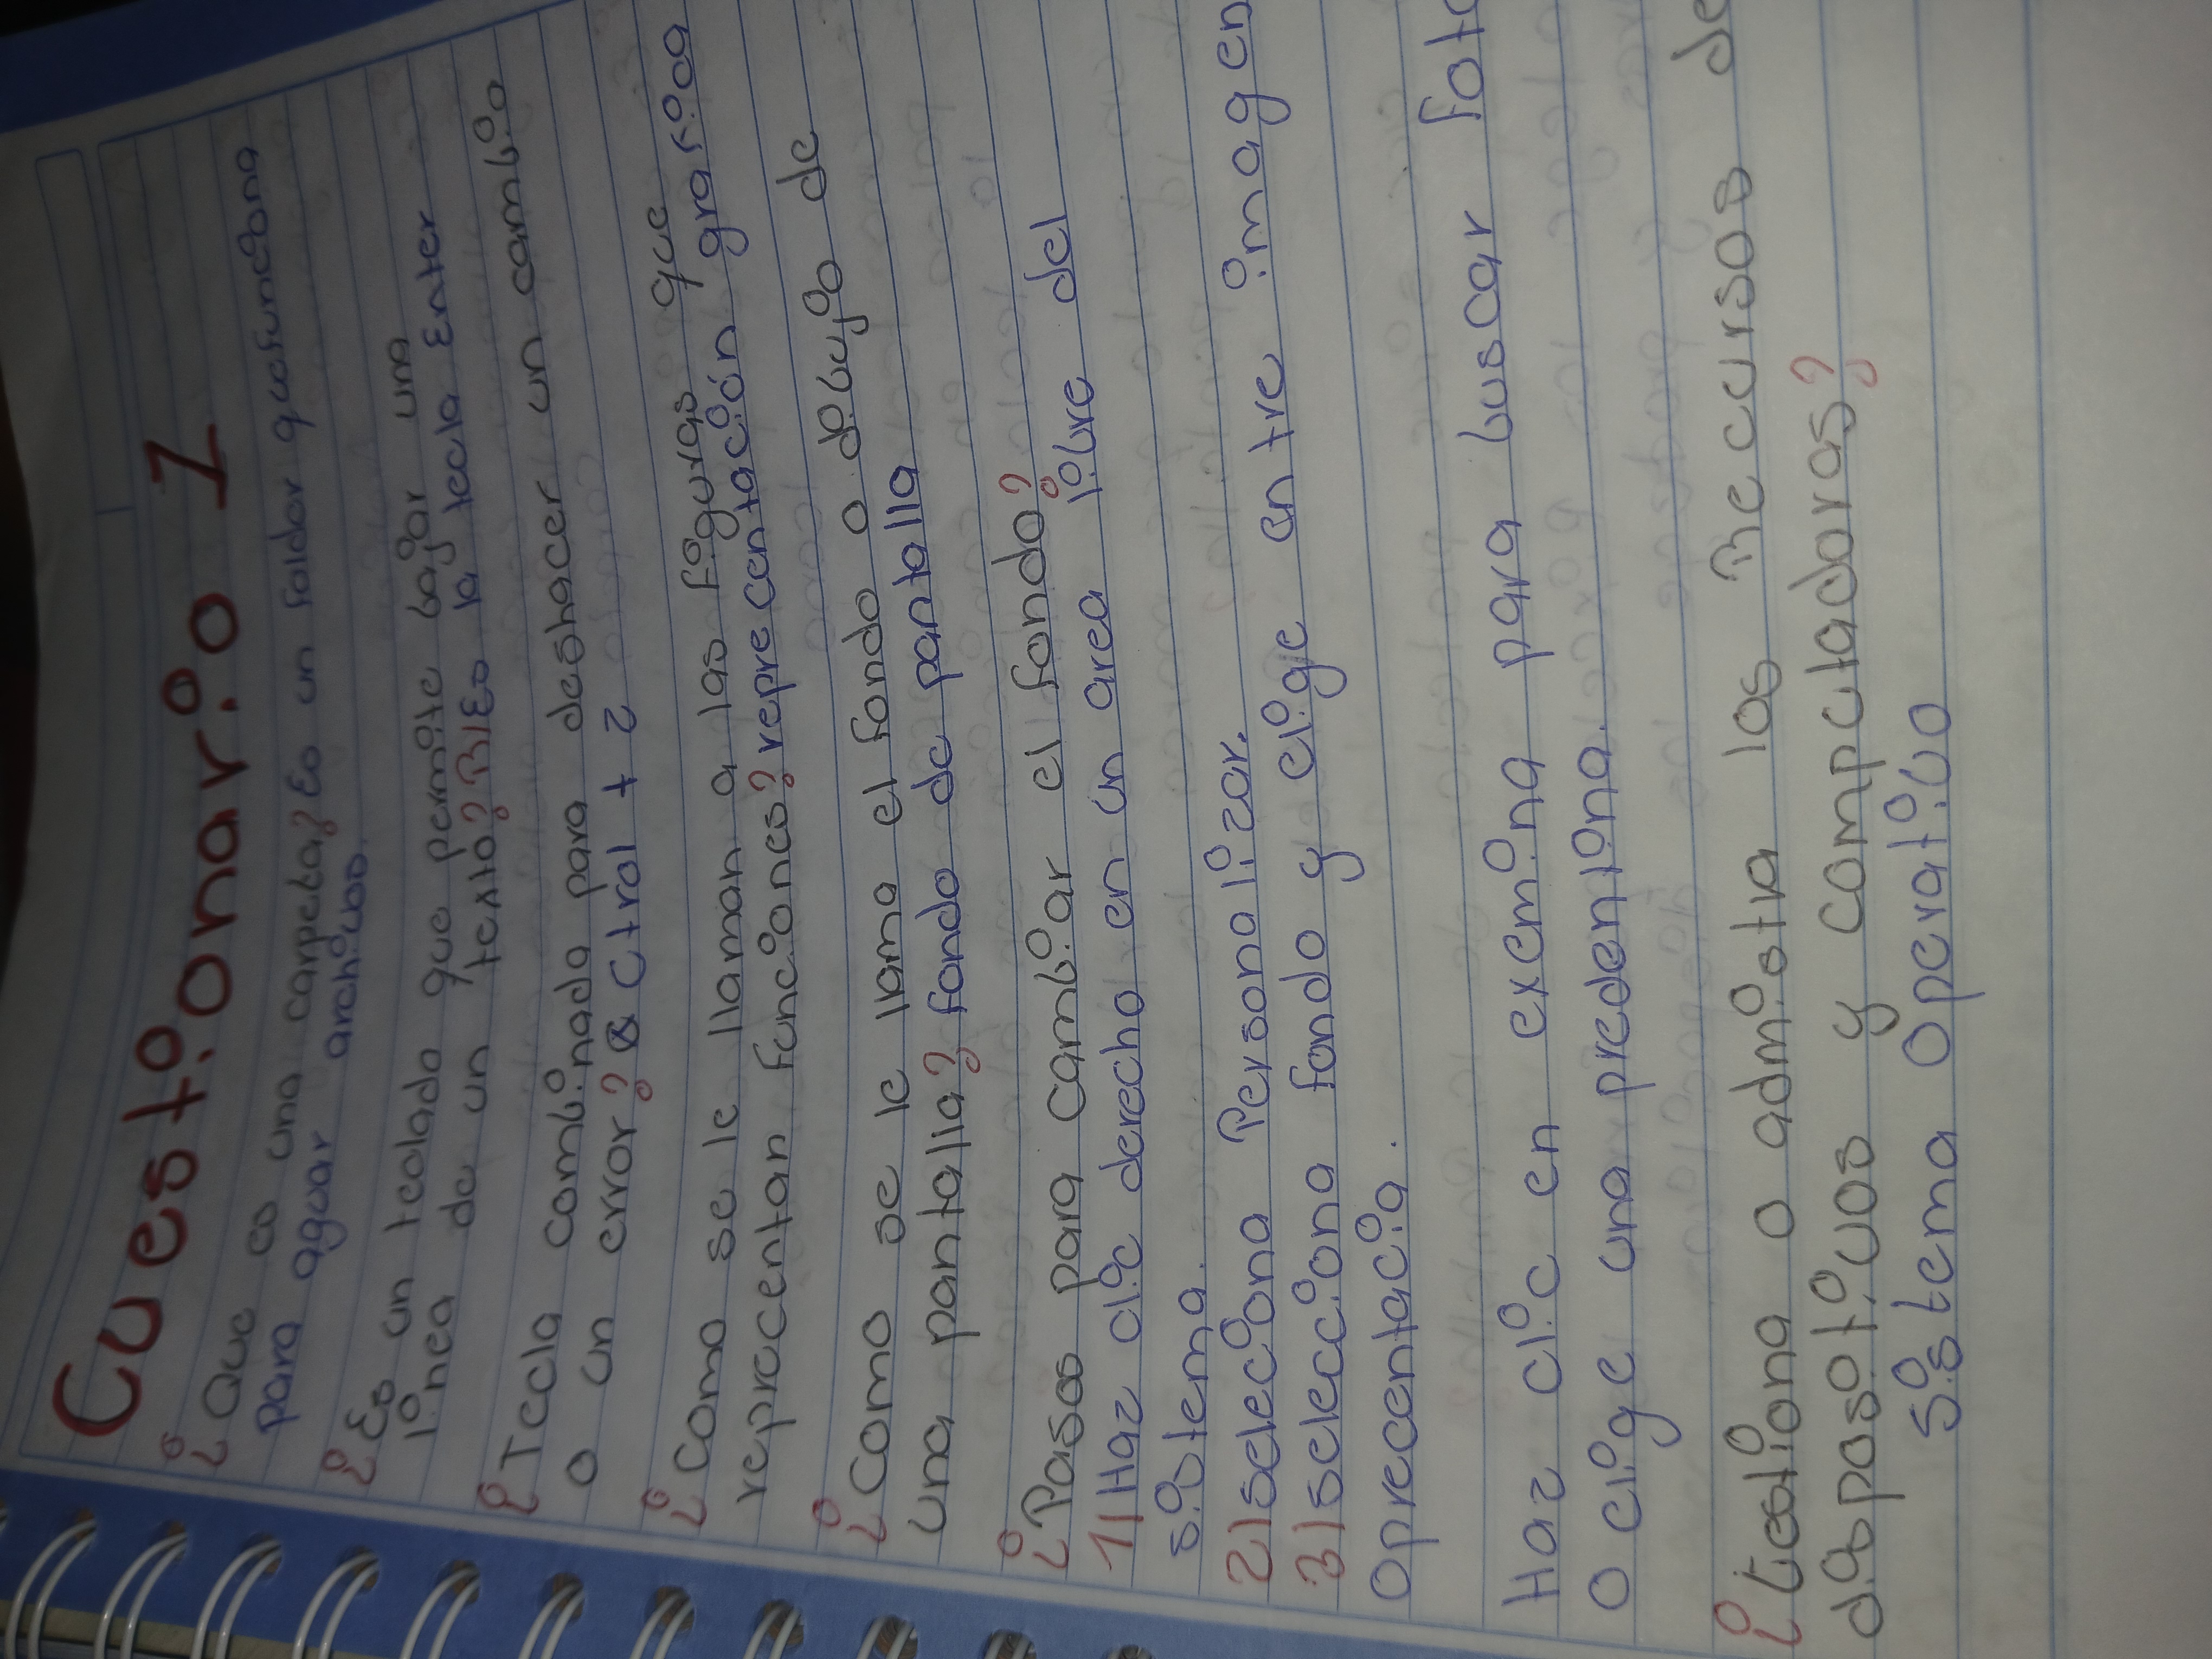 Cuestionario 1
¿Que es una carpeta? Es un folder que funciona
para aguar archivos.
¿Es un teclado que permite bajar una
linea de un texto? R/Es la tecla Enter
¿Tecla combinada para deshacer un cambio
o un error? Ctrol + z
¿Como se le llaman a las figuras que
reprecentan funciones? reprecentación grafica
¿Como se le llama el fondo o dibujo de
una pantalla? fondo de pantalla
¿Pasos para cambiar el fondo?
1) Haz clic derecho en un area libre del
sistema.
2) selecciona Personalizar.
3) selecciona fondo y elige entre imagen
O precentacia.
Haz clic en exemina para buscar foto
O elige una predentina.
¿Gestiona o admistra los Recursos de
dispositivos y compctadoras?
Sistema Operativo